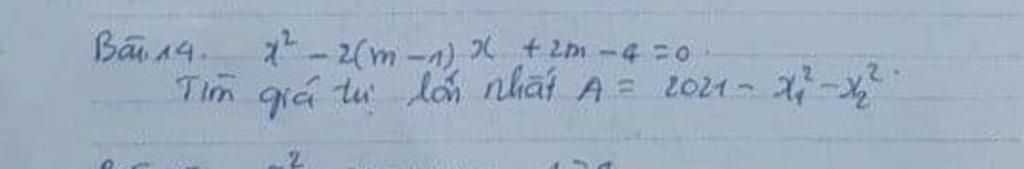 Bài 14. x² - 2(m-1)x + 2m - 4 = 0.
Tìm giá trị lớn nhất A = 2021 - x₁² - x₂².